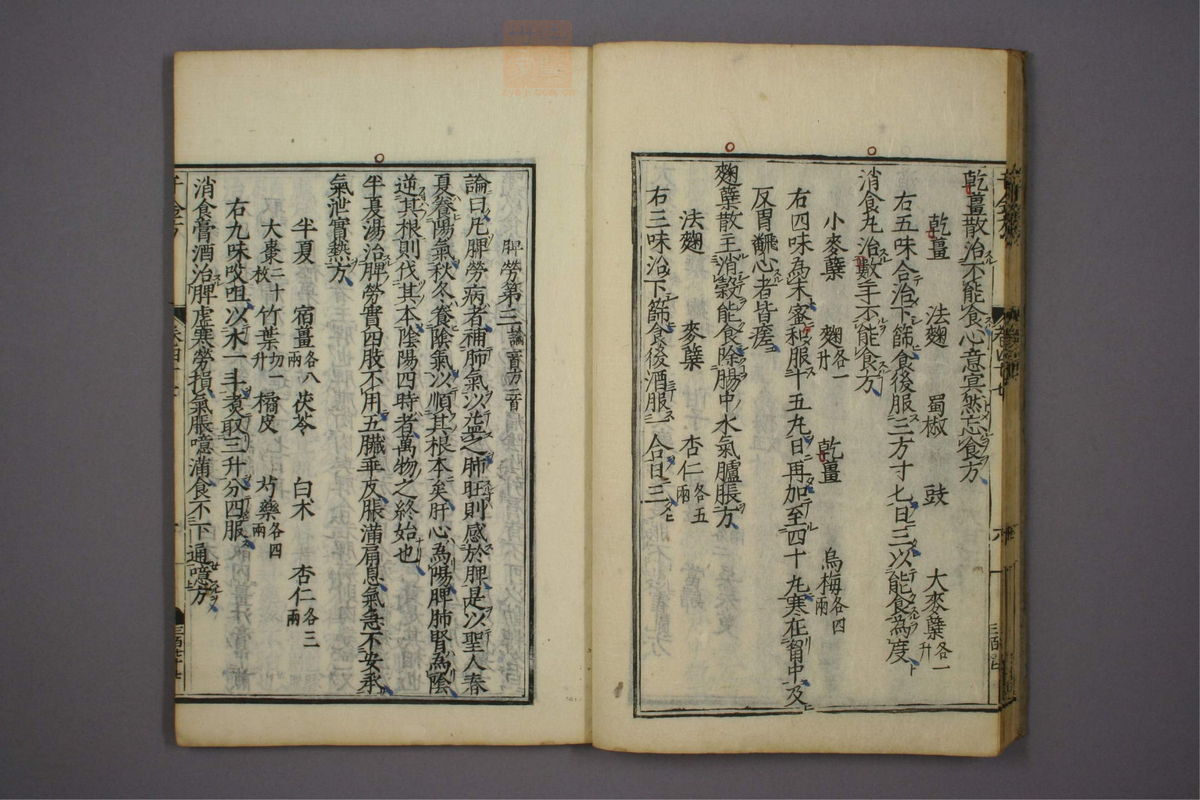 乾薑散治不能食心意冥然忘食方
乾薑 法麴 蜀椒 豉 大麥蘖各一升
右五味合治下篩食後服三方寸七日三以能食為度
消食丸治數手不能食方
小麥蘖 麴各一升 乾薑 烏梅各四兩
右四味為末蜜和服十五丸日再加至四十丸寒在胷中及
反胃飜心者皆瘥
麴蘖散主消穀能食除腸中水氣臚脹方
法麴 麥蘖 杏仁各五兩
右三味治下篩食後酒服一合日三
脾勞第三論一首方三首
論曰凡脾勞病者補肺氣以益之肺旺則感於脾是以聖人春
夏養陽氣秋冬養陰氣以順其根本矣肝心為陽脾肺腎為陰
逆其根則伐其本陰陽四時者萬物之終始也
半夏湯治脾勞實四肢不用五臟乖反脹滿肩息氣急不安承
氣泄實熱方
半夏 宿薑各八兩 茯苓 白朮 杏仁各三兩
大棗二十枚 竹葉切一升 橘皮 芍藥各四兩
右九味㕮咀以水一斗煮取三升分四服
消食膏酒治脾虛寒勞損氣脹噫滿食不下通噫方
千金方
卷四十七